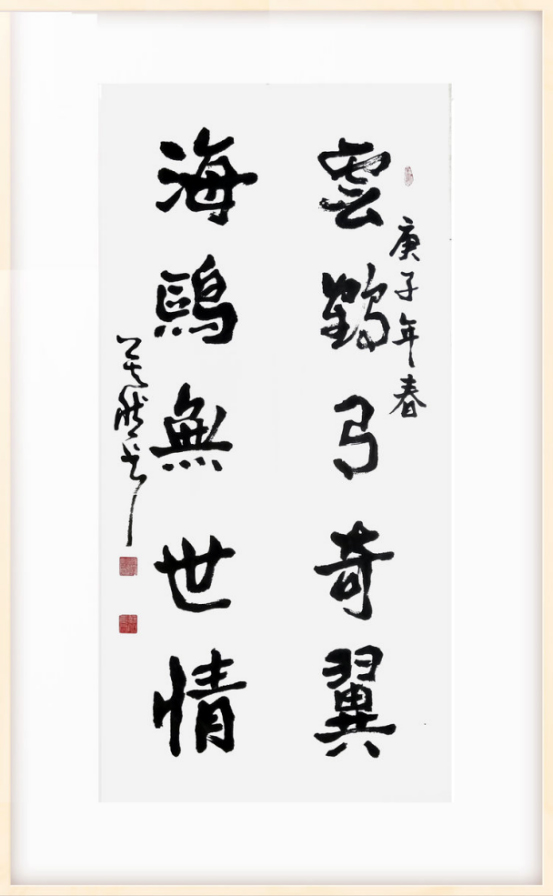 庚子年春
雲鶴有奇翼
海鷗無世情